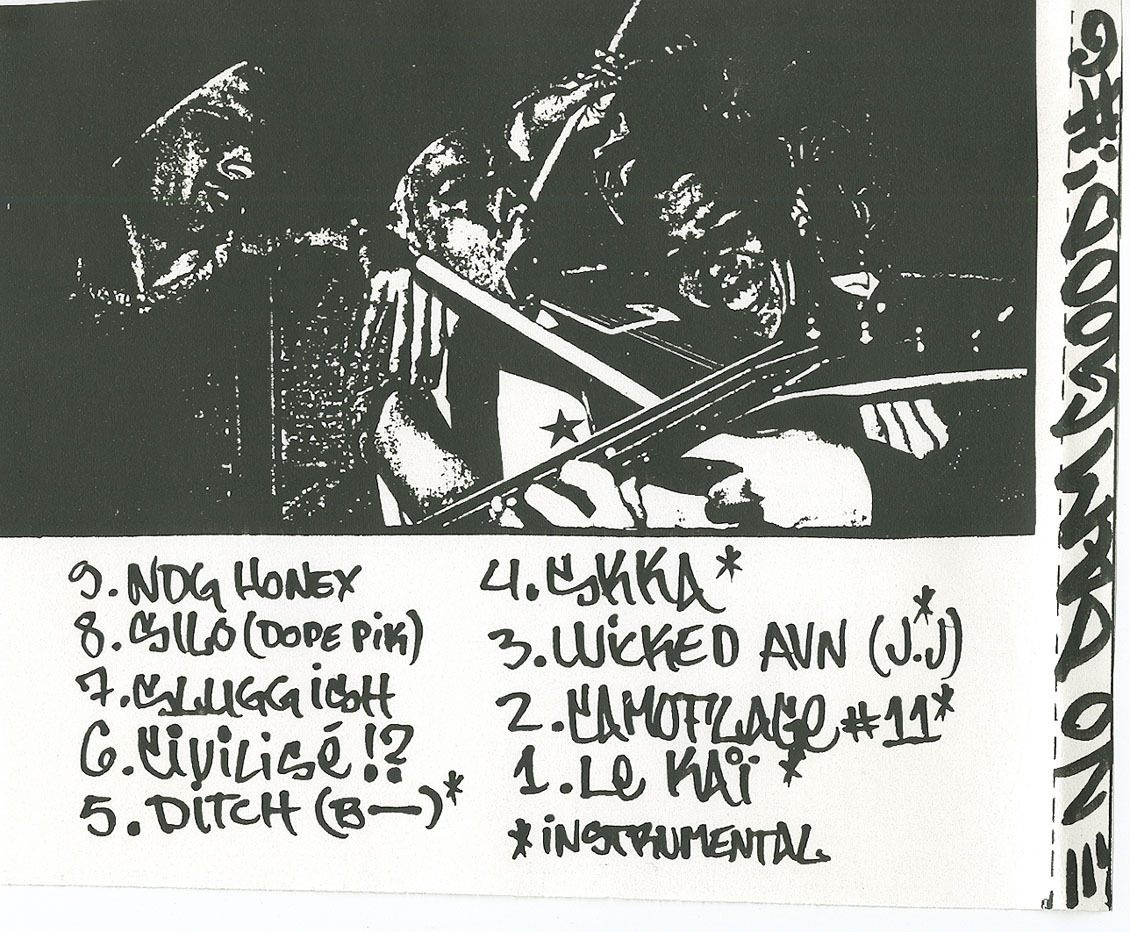 9. NDG HONEX
8. SILO (DOPE PiK)
7. SLUGGiSH
6. CiVILiSé!?
5. DiTCH (B—)*
4. SKKA*
3. WiCKED AVN (J.J)*
2. CAMOFLAGE #11*
1. Le KAï *
*iNSTRUMENTAL.